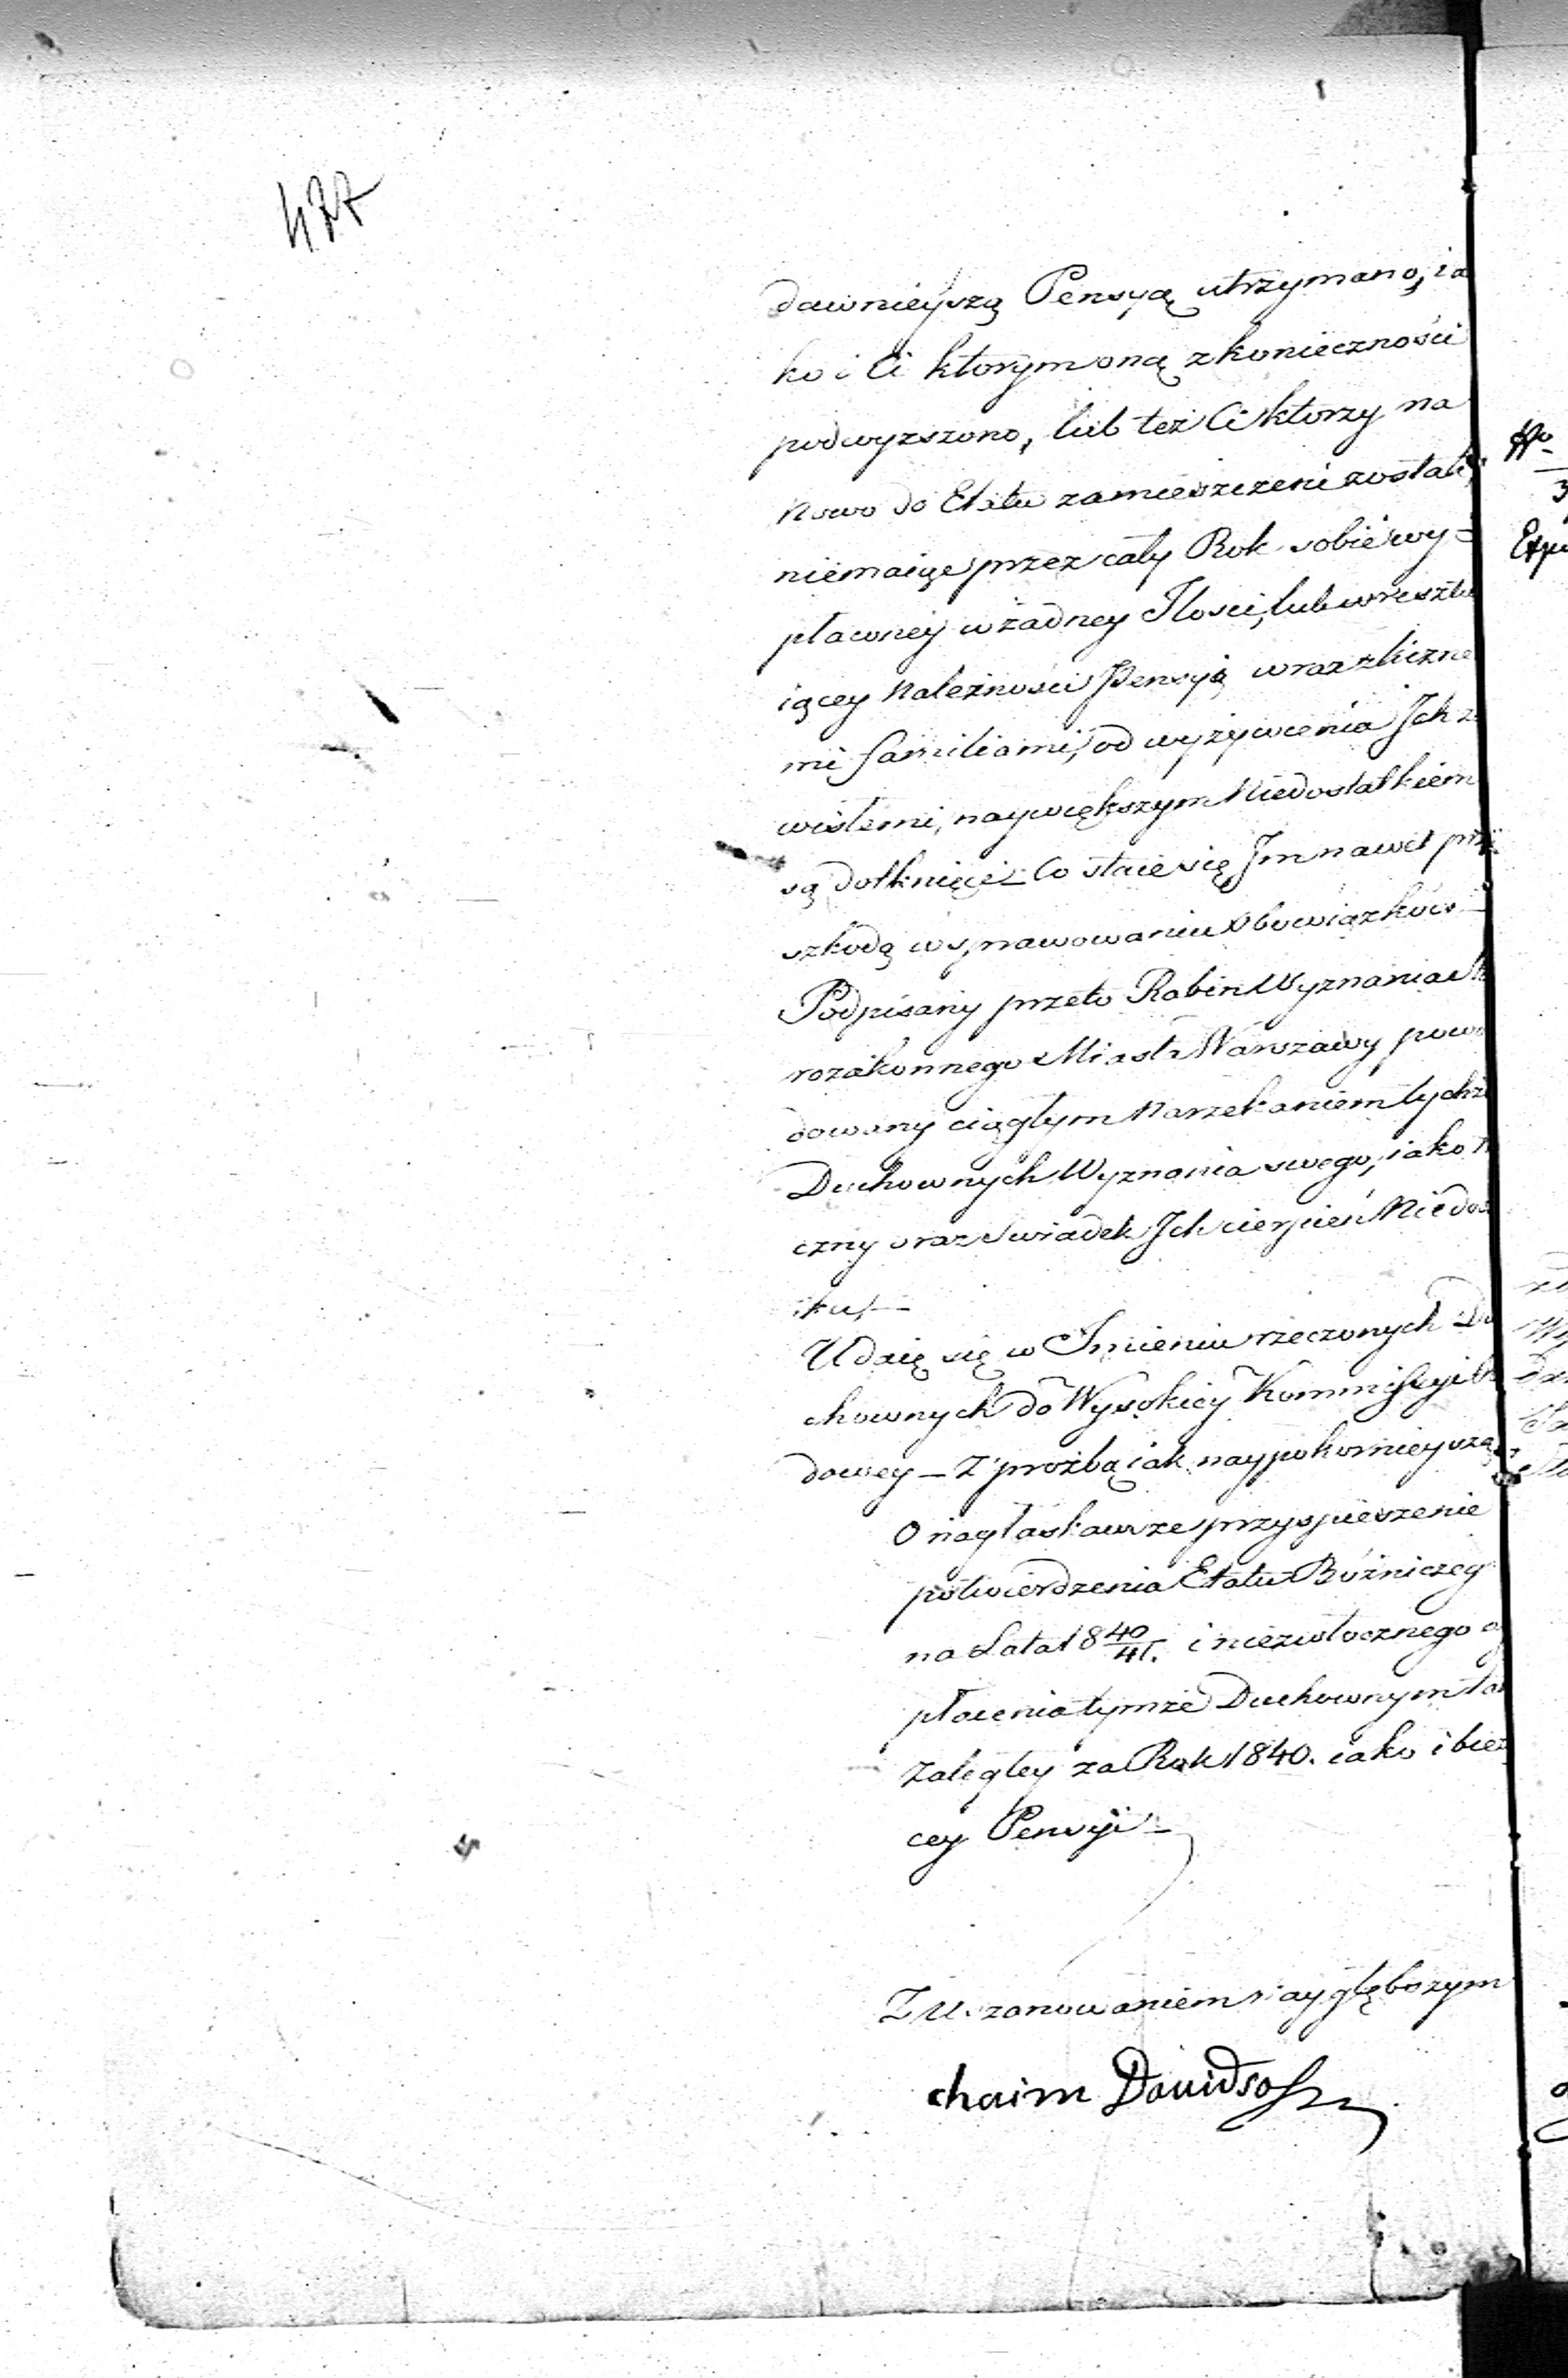 477
dawnieyszą Pensyą utrzymano, ia
ko i Ci ktorym oną z konieczności
podwyzszono, lub też Ci ktorzy na
Nowo do Etatu zamieszczeni zostali,
niemaiąc przez cały Rok sobie wy=
płaconéy w żadney Ilosci, lub w reszt
iącey należności Pensyą wraz z liczne
mi familiami, od wyżywienia Ich z
wisłemi, naywiększym Niedostatkiem
są dotknięci – Co staie się Im nawet prze
szkodą w sprawowaniu Obowiązków –
Podpisany przeto Rabin Wyznania
rozakonnego Miasta Warszawy powo
dowany ciągłym Narzekaniem tychże
Duchownych Wyznania swego, iako
czny oraz Swiadek Ich cierpień Niedos
tku, –
Udaię się w Imieniu rzeczonych Du
chownych do Wysokiéy Kommissyi
dowey – Z prożbą iak naypokornieyszą
O nayłaskawsze przyspieszenie
potwierdzenia Etatu Bóżniczeg
na Lata 18 40/41. i niezwłocznego
płacenia tymże Duchownym ta
Zaległey za Rok 1840. iako i bież
cey Pensyi –
Z Uszanowaniem naygłębszym
Chaim Davidsohn
No